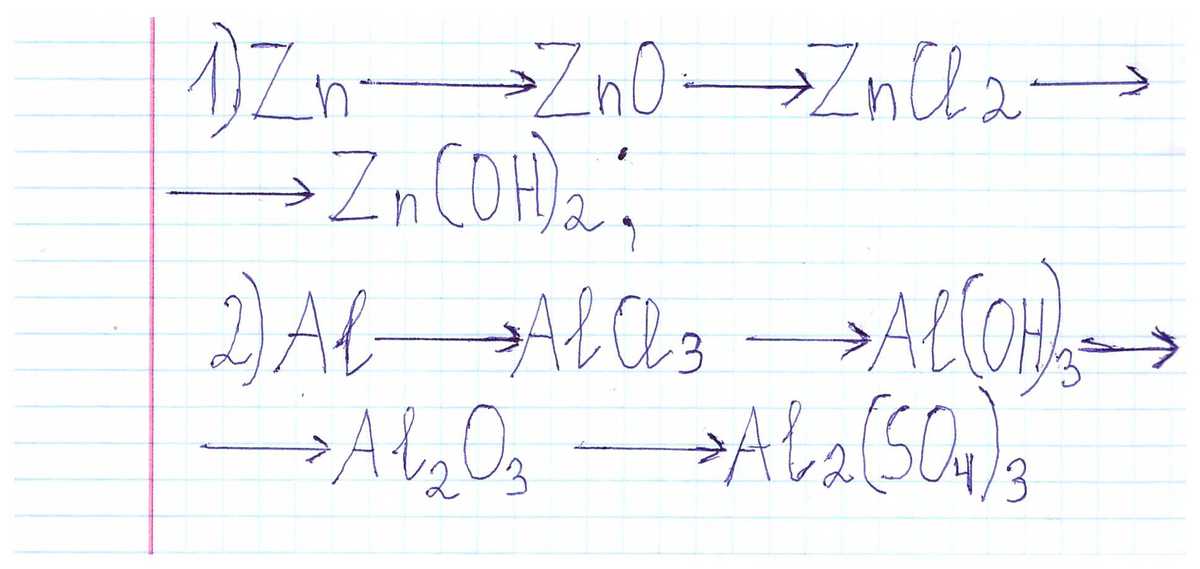 1) Zn ⟶ ZnO ⟶ ZnCl₂ ⟶
⟶ Zn(OH)₂;
2) Al ⟶ AlCl₃ ⟶ Al(OH)₃ ⟶
⟶ Al₂O₃ ⟶ Al₂(SO₄)₃